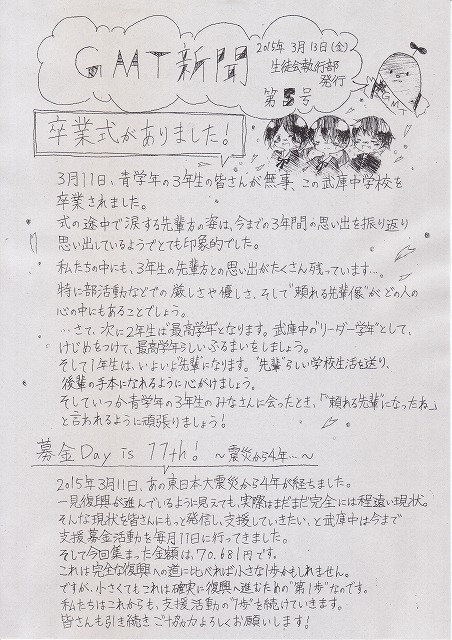 GMT新聞
2015年 3月13日(金)
生徒会執行部
発行
第5号
GMT
卒業式がありました!
3月11日、青学年の3年生の皆さんが無事、この武庫中学校を
卒業されました。
式の途中で涙する先輩方の姿は、今までの3年間の思い出を振り返り
思い出しているようでとても印象的でした。
私たちの中にも、3年生の先輩方との思い出がたくさん残っています…。
特に部活動などでの厳しさや優しさ、そして"頼れる先輩像"がどの人の
心の中にもあることでしょう。
…さて、次に2年生は"最高学年"となります。武庫中の"リーダー学年"として、
けじめをつけて、最高学年らしいふるまいをしましょう。
そして1年生は、いよいよ"先輩"になります。"先輩"らしい学校生活を送り、
後輩の手本になれるように心がけましょう。
そしていつか青学年の3年生のみなさんに会ったとき、「"頼れる先輩"になったね」
と言われるように頑張りましょう!
募金Day is 11th! ~震災から4年…~
2015年3月11日、あの東日本大震災から4年が経ちました。
一見復興が進んでいるように見えても、実際はまだまだ完全には程遠い現状。
そんな現状を皆さんにもっと発信し、支援していきたい、と武庫中は今まで
支援募金活動を毎月11日に行ってきました。
そして今回集まった金額は、70.681円です。
これは完全な復興への道に比べれば小さな1歩かもしれません。
ですが、小さくてもこれは確実に復興へ進むための"第1歩"なのです。
私たちはこれからも、支援活動の"1歩"を続けていきます。
皆さんも引き続きご協力よろしくお願いします!